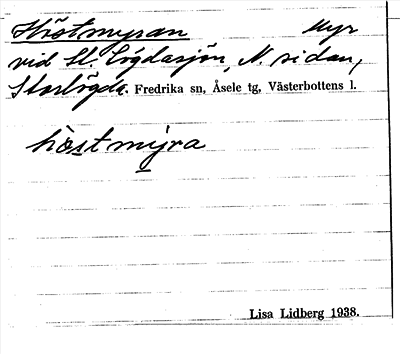 Höstmyran Myr
vid St. Lögdasjön, N. sidan,
Storlögda. Fredrika sn, Åsele tg, Västerbottens l.
höstmyra
Lisa Lidberg 1938.